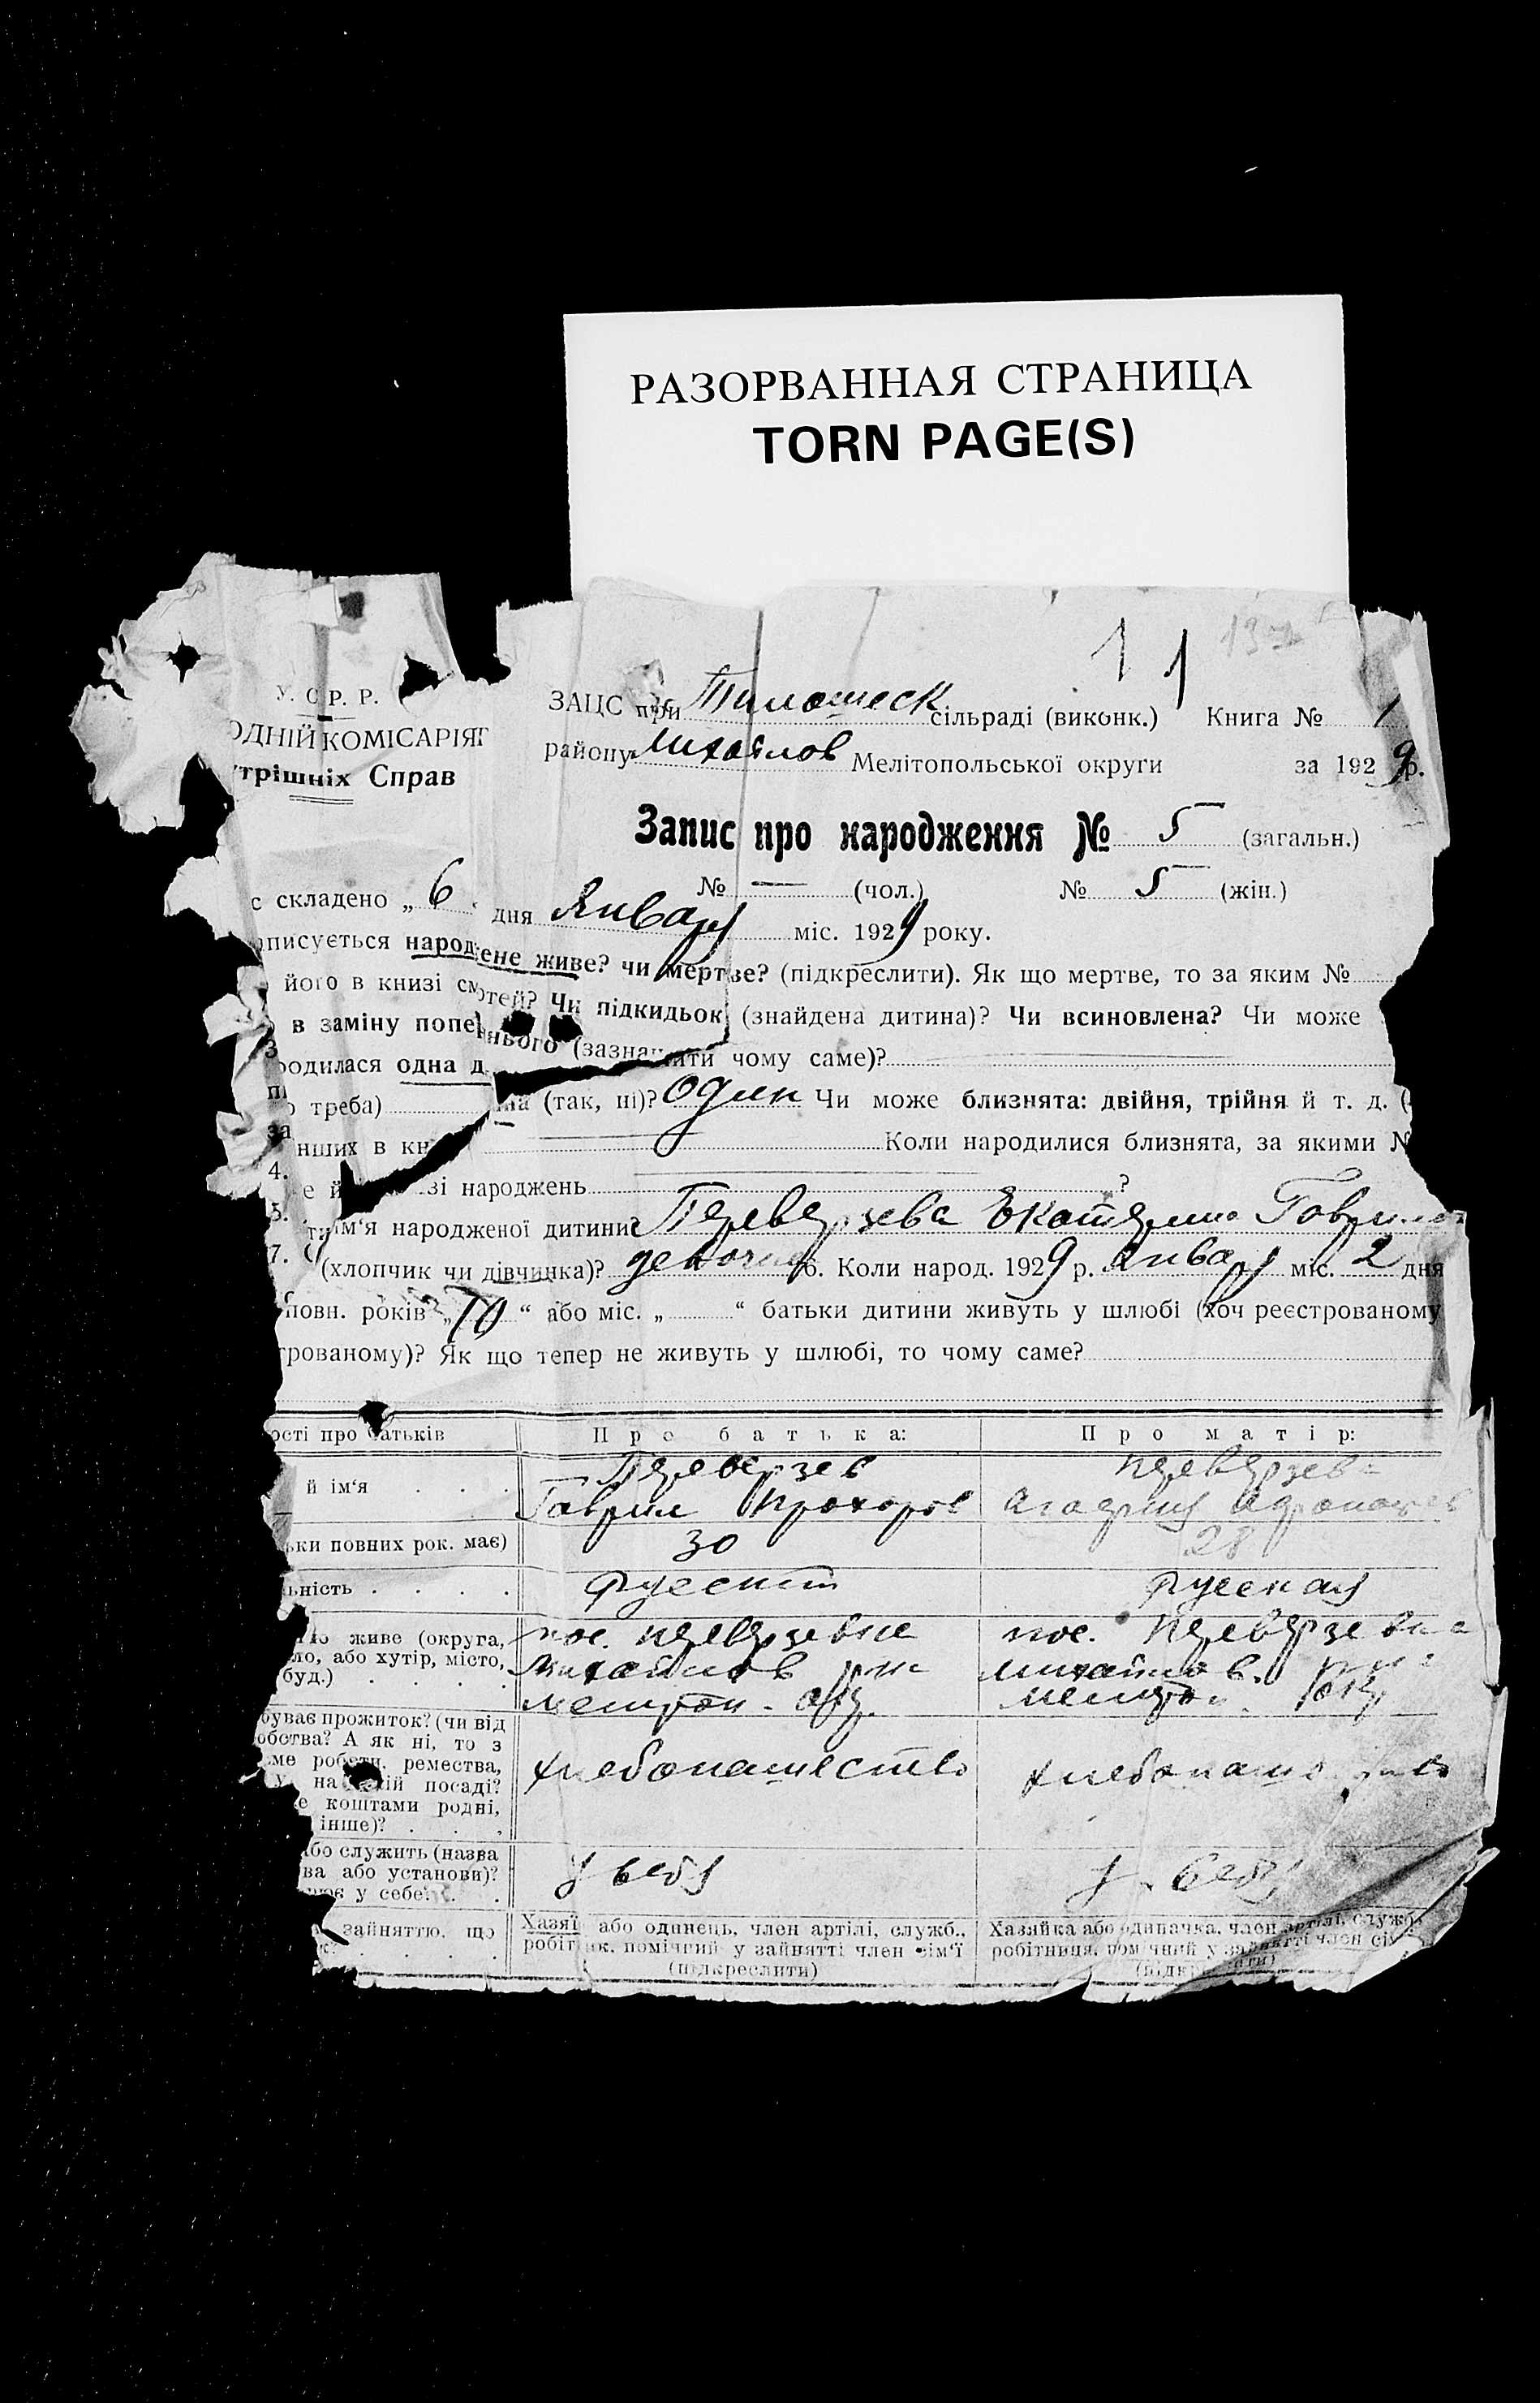 РАЗОРВАННАЯ СТРАНИЦА
TORN PAGE(S)
1 1
У. С Р. Р.
ОДНІЙ КОМІСАРІЯТ
трішніх Справ
ЗАЦС при Тимошеск сільраді (виконк.) Книга № 1
району Михайлов Мелітопольської округи за 1929 р.
Запис про народження № 5 (загальн.)
№ — (чол.) № 5 (жін.)
с складено „ 6 дня Январ міс. 1929 року.
писується народжене живе? чи мертве? (підкреслити). Як що мертве, то за яким №
його в книзі смертей? Чи підкидьок (знайдена дитина)? Чи всиновлена? Чи може
в заміну попе нього (зазна ити чому саме)?
родилася одна д на (так, ні)? Один Чи може близнята: двійня, трійня й т. д.
о треба)
нших в кн Коли народилися близнята, за якими №
4. е й зі народжень ?
5. ім'я народженої дитини? Переверзева Екатерина Гаврилов
7. (хлопчик чи дівчинка)? девочка 6. Коли народ. 1929 р. Январ міс. 2 дня
повн. років „ 10 “ або міс. „ “ батьки дитини живуть у шлюбі (хоч реєстрованому
трованому)? Як що тепер не живуть у шлюбі, то чому саме?
ості про батьків
Про батька:
Про матір:
й ім'я . . .
Переверзев
Гаврил Прохоров
Переверзев
ьки повних рок. має)
30
28
ьність . . . .
Русский
Русская
живе (округа,
ло, або хутір, місто,
буд.) . . . .
пос. Переверзевка
Михайлов р-на
мелитоп. окр.
пос. Переверзевка
михайлов. р-на
мелитоп. окр
буває прожиток? (чи від
обства? А як ні, то з
ме роботи, ремества,
у на якій посаді?
е коштами родні,
інше)? . . .
хлебопашество
хлебопаше
або служить (назва
ва або установи)?
ює у себе? . .
у себя
у себя
зайняттю, що
Хазяї або одинець, член артілі, служб.,
робітник, помічний у зайнятті член сім'ї
(підкреслити)
Хазяйка або одиначка, член артілі, служб.
робітниця, помічний у зайнятті член сі
(підкр ити)